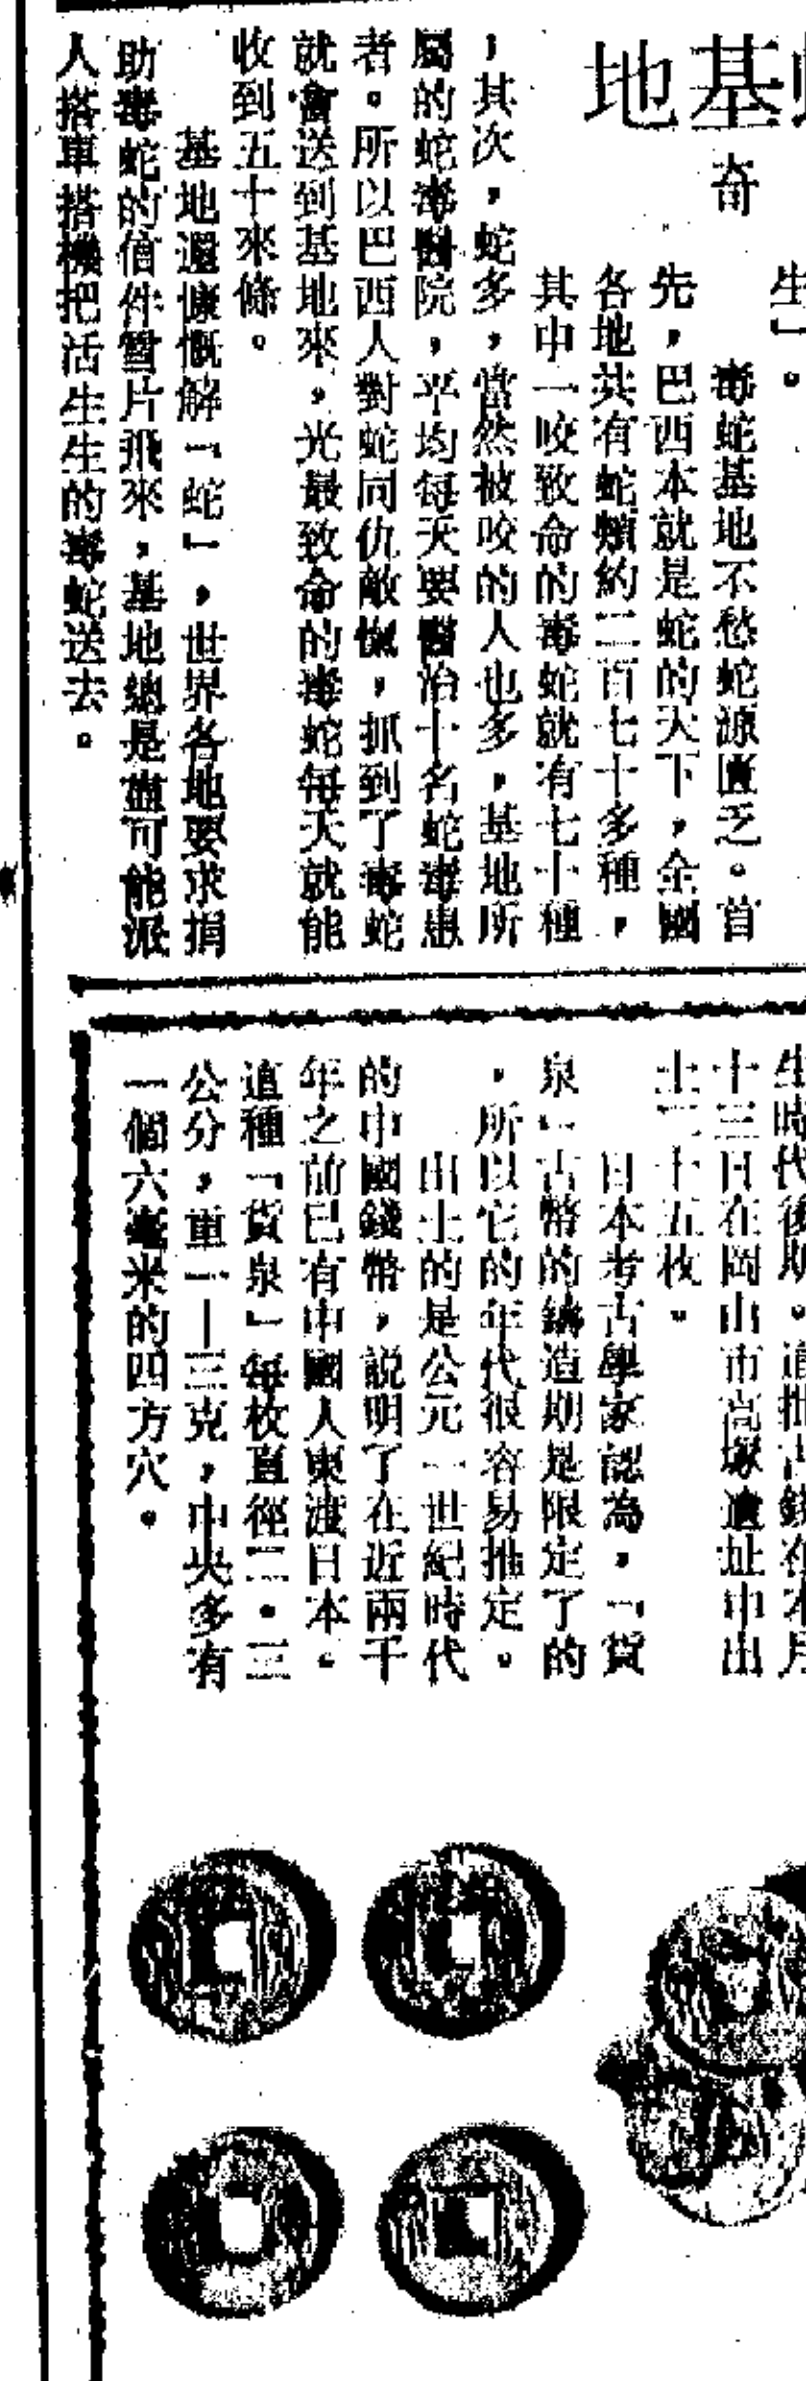 基地
奇
生」。
毒蛇基地不愁蛇源匱乏。首
先，巴西本就是蛇的天下，全國
各地共有蛇類約二百七十多種，
其中一咬致命的毒蛇就有七十種
，其次，蛇多，當然被咬的人也多，基地所
屬的蛇毒醫院，平均每天要醫治十名蛇毒患
者。所以巴西人對蛇同仇敵愾，抓到了毒蛇
就會送到基地來，光最致命的毒蛇每天就能
收到五十來條。
基地還慷慨解「蛇」，世界各地要求捐
助毒蛇的信件雪片飛來，基地總是盡可能派
人搭車搭機把活生生的毒蛇送去。
生時代後期。這批古錢在本月
十三日在岡山市高塚遺址中出
土二十五枚。
日本考古學家認為，「貨
泉」古幣的鑄造期是限定了的
，所以它的年代很容易推定。
出土的是公元一世紀時代
的中國錢幣，說明了在近兩千
年之前已有中國人東渡日本。
這種「貨泉」每枚直徑二．三
公分，重一—三克，中央多有
一個六毫米的四方穴。